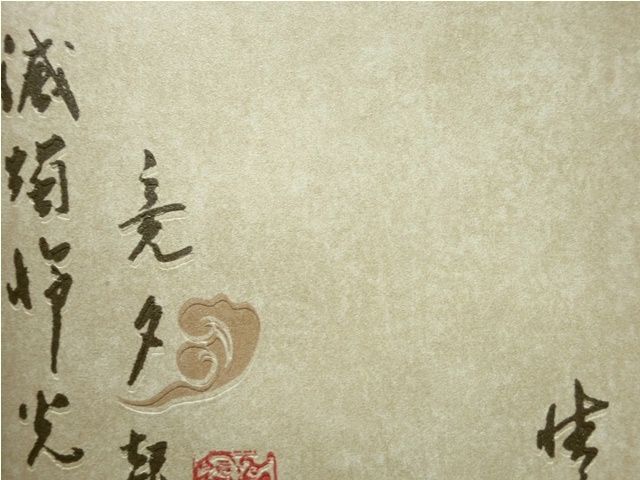 情
竟夕起
滅燭憐光